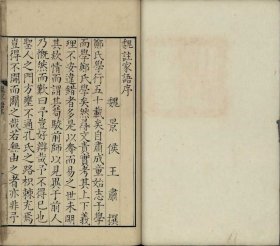 魏註家語序
魏景侯王肅撰
鄭氏學行五十載矣自肅成童始志于學
而學鄭氏學矣然尋文責實考其上下義
理不安違錯者多是以奪而易之世未明
其款情而謂其苟駁前師以見異于前人
乃慨然而歎曰予豈好辯哉予不得已也
聖人之門方壅不通孔氏之路枳棘充焉
豈得不開而闢之哉若無由之者亦非予